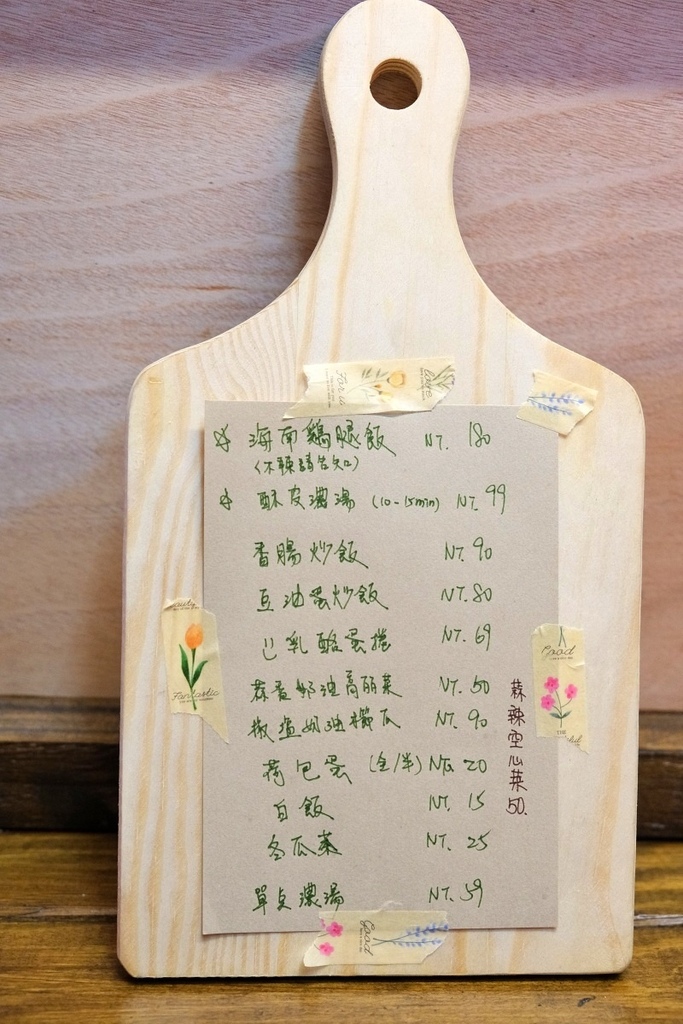 Faris
love
☆ 海南鷄腿飯 NT. 180
(不辣請告知)
☆ 酥皮濃湯 (10-15min) NT. 99
香腸炒飯 NT. 90
豆油蛋炒飯 NT. 80
乳酪蛋捲 NT. 69
蒜香奶油高麗菜 NT. 50
椒塩奶油櫛瓜 NT. 90
荷包蛋 (全/半) NT. 20
白飯 NT. 15
冬瓜茶 NT. 25
單点濃湯 NT. 59
蒜辣空心菜 50.
Fantastic
Good
Good